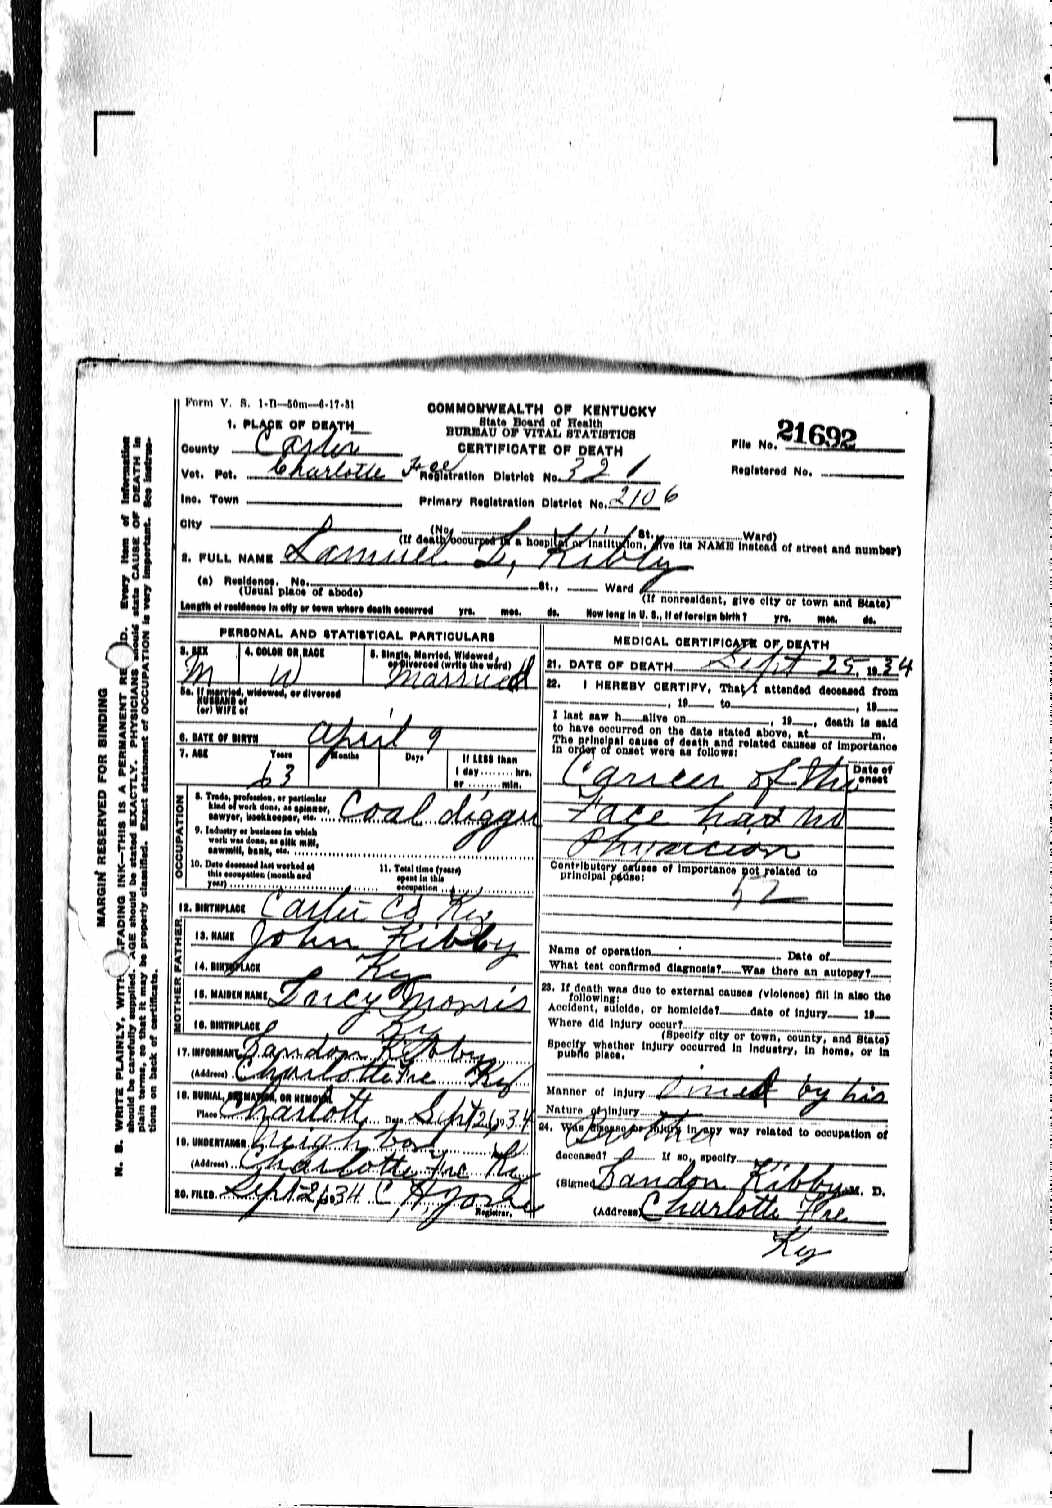 Form V. S. 1-D—50m—6-17-31
COMMONWEALTH OF KENTUCKY
State Board of Health
BUREAU OF VITAL STATISTICS
CERTIFICATE OF DEATH
File No. 21692
Registered No.
1. PLACE OF DEATH
County Carter
Vot. Pct. Charlotte Fce
Registration District No. 321
Inc. Town
Primary Registration District No. 2106
City
(No. St. Ward)
(If death occurred in a hospital or institution, give its NAME instead of street and number)
2. FULL NAME Samuel L, Kibby
(a) Residence. No. St., Ward
(Usual place of abode)
(If nonresident, give city or town and State)
Length of residence in city or town where death occurred yrs. mos. ds. How long in U. S., if of foreign birth? yrs. mos. ds.
PERSONAL AND STATISTICAL PARTICULARS
3. SEX M
4. COLOR OR RACE W
5. Single, Married, Widowed, or Divorced (write the word) Married
5a. If married, widowed, or divorced
HUSBAND of
(or) WIFE of
6. DATE OF BIRTH April 9
7. AGE Years 63 Months Days
If LESS than
1 day........hrs.
or ........min.
OCCUPATION
8. Trade, profession, or particular
kind of work done, as spinner,
sawyer, bookkeeper, etc. Coal digger
9. Industry or business in which
work was done, as silk mill,
sawmill, bank, etc.
10. Date deceased last worked at
this occupation (month and
year)
11. Total time (years)
spent in this
occupation
12. BIRTHPLACE Carter Co Ky
FATHER
13. NAME John Kibby
14. BIRTHPLACE Ky
MOTHER
15. MAIDEN NAME Morris
16. BIRTHPLACE Ky
17. INFORMANT Landon Kibby
(Address) Charlotte Fre Ky
18. BURIAL, CREMATION, OR REMOVAL
Place Charlott Date Sept 26, 34
19. UNDERTAKER neighbors
(Address) Charlotte Fre Ky
20. FILED Sept 26, 34 C H
Registrar.
MEDICAL CERTIFICATE OF DEATH
21. DATE OF DEATH Sept 25, 1934
22. I HEREBY CERTIFY, That I attended deceased from
, 19 to , 19
I last saw h alive on , 19 , death is said
to have occurred on the date stated above, at m.
The principal cause of death and related causes of importance
in order of onset were as follows:
Date of onset
Cancer of the
Face had no
Physician
Contributory causes of importance not related to
principal cause:
52
Name of operation Date of
What test confirmed diagnosis? Was there an autopsy?
23. If death was due to external causes (violence) fill in also the
following:
Accident, suicide, or homicide? date of injury 19
Where did injury occur?
(Specify city or town, county, and State)
Specify whether injury occurred in industry, in home, or in
public place.
Manner of injury Sined by his
Nature of injury
Brother
24. Was disease or injury in any way related to occupation of
deceased? If so, specify
(Signed) Landon Kibby M. D.
(Address) Charlotte Fre
Ky
MARGIN RESERVED FOR BINDING
N. B. WRITE PLAINLY, WITH UNFADING INK—THIS IS A PERMANENT RECORD. Every item of information
should be carefully supplied. AGE should be stated EXACTLY. PHYSICIANS should state CAUSE OF DEATH in
plain terms, so that it may be properly classified. Exact statement of OCCUPATION is very important. See instruc-
tions on back of certificate.